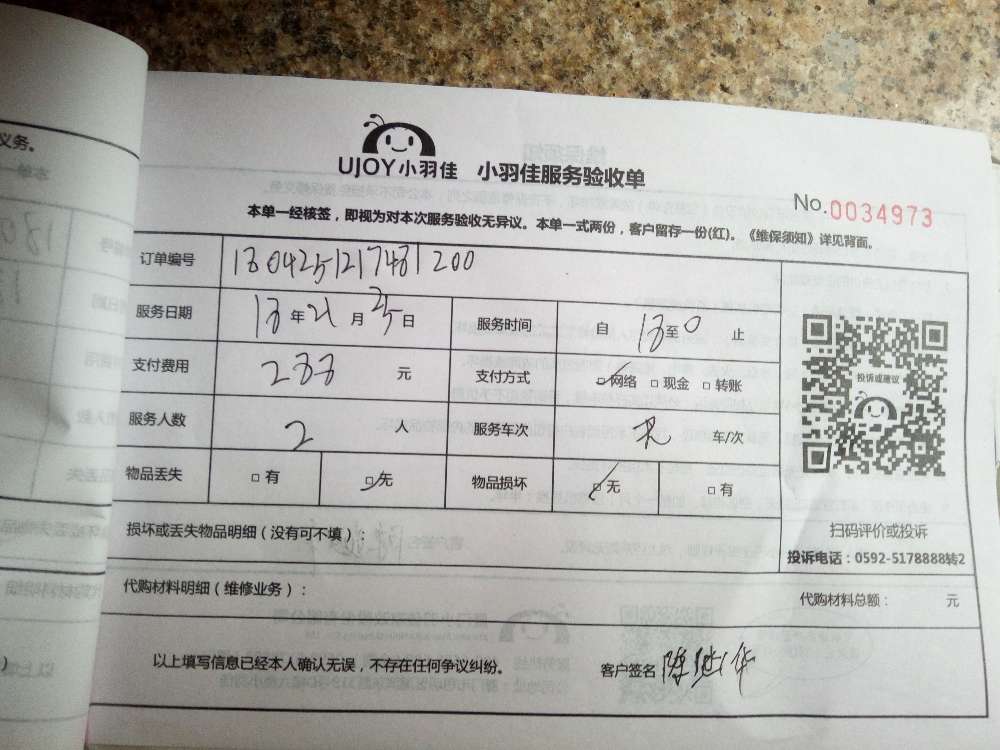 UJOY小羽佳 小羽佳服务验收单
No.0034973
本单一经核签，即视为对本次服务验收无异议。本单一式两份，客户留存一份(红)。《维保须知》详见背面。
订单编号
服务日期 年 21 月 25 日 服务时间 自 至 0 止
支付费用 元 支付方式 □网络 □现金 □转账
服务人数 2 人 服务车次 车/次
物品丢失 □有 □无 物品损坏 □无 □有
损坏或丢失物品明细（没有可不填）：
投诉或建议
扫码评价或投诉
投诉电话：0592-5178888转2
代购材料明细（维修业务）：
代购材料总额： 元
以上填写信息已经本人确认无误，不存在任何争议纠纷。 客户签名